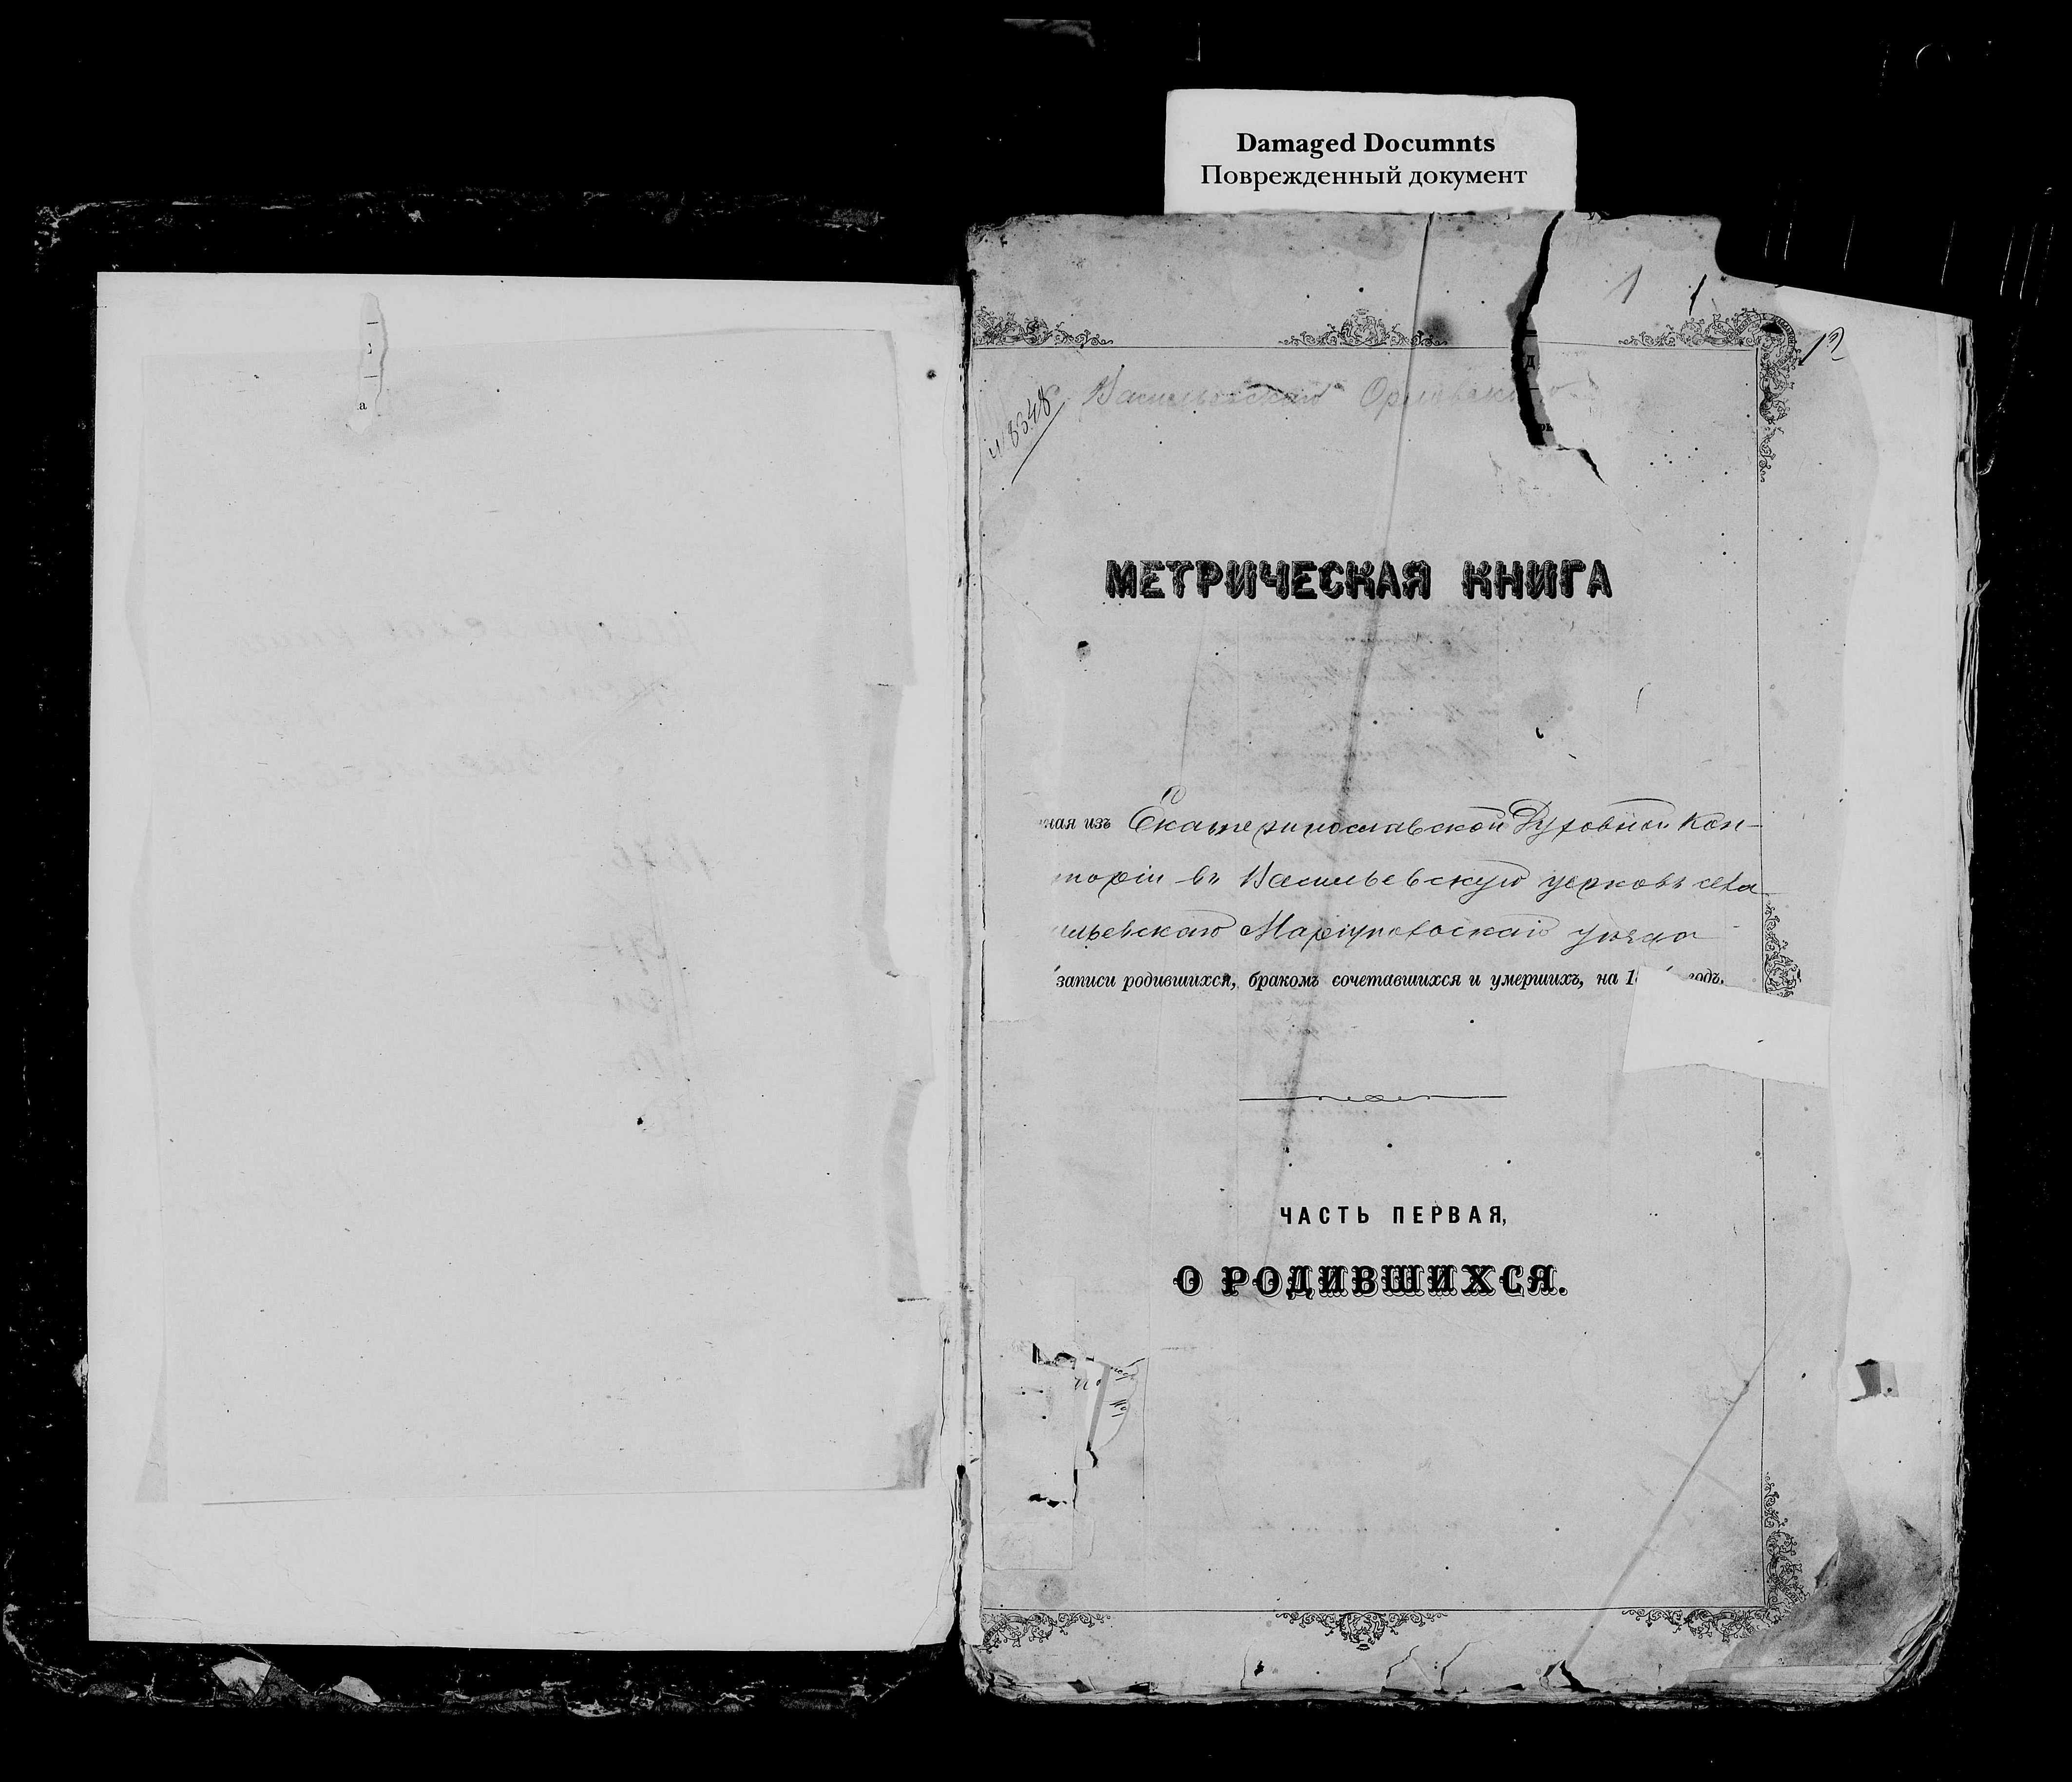 Damaged Documnts
Поврежденный документ
1 1
12
Васильевская
8348
МЕТРИЧЕСКАЯ КНИГА
ная изъ Екатеринославской Духовной Кон-
торіи въ Васильевскую церковь села
ильевскаго Маріупольскаго уѣзда
записи родившихся, бракомъ сочетавшихся и умершихъ, на 1 годъ.
ЧАСТЬ ПЕРВАЯ,
О РОДИВШИХСЯ.